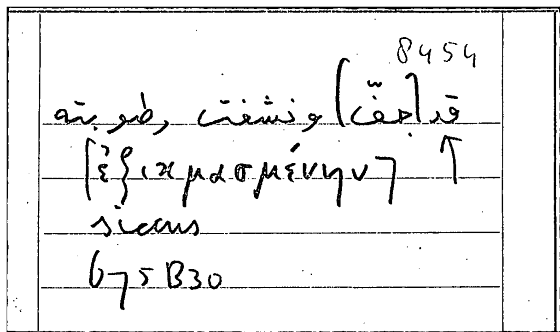 8454
قد [جفّت] ونشفت رطوبته
↑ ⌈ἐξικμασμένην⌉
siccus
675 B30